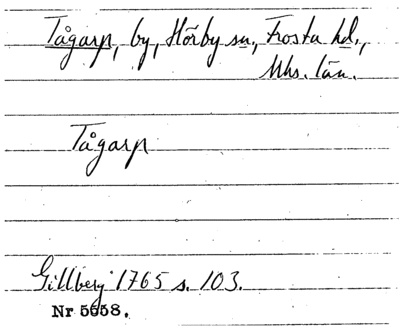 Tågarp, by, Hörby sn, Frosta hd.,
Mhs. län.
Tågarp
Gillberg 1765 s. 103.
Nr 5658.